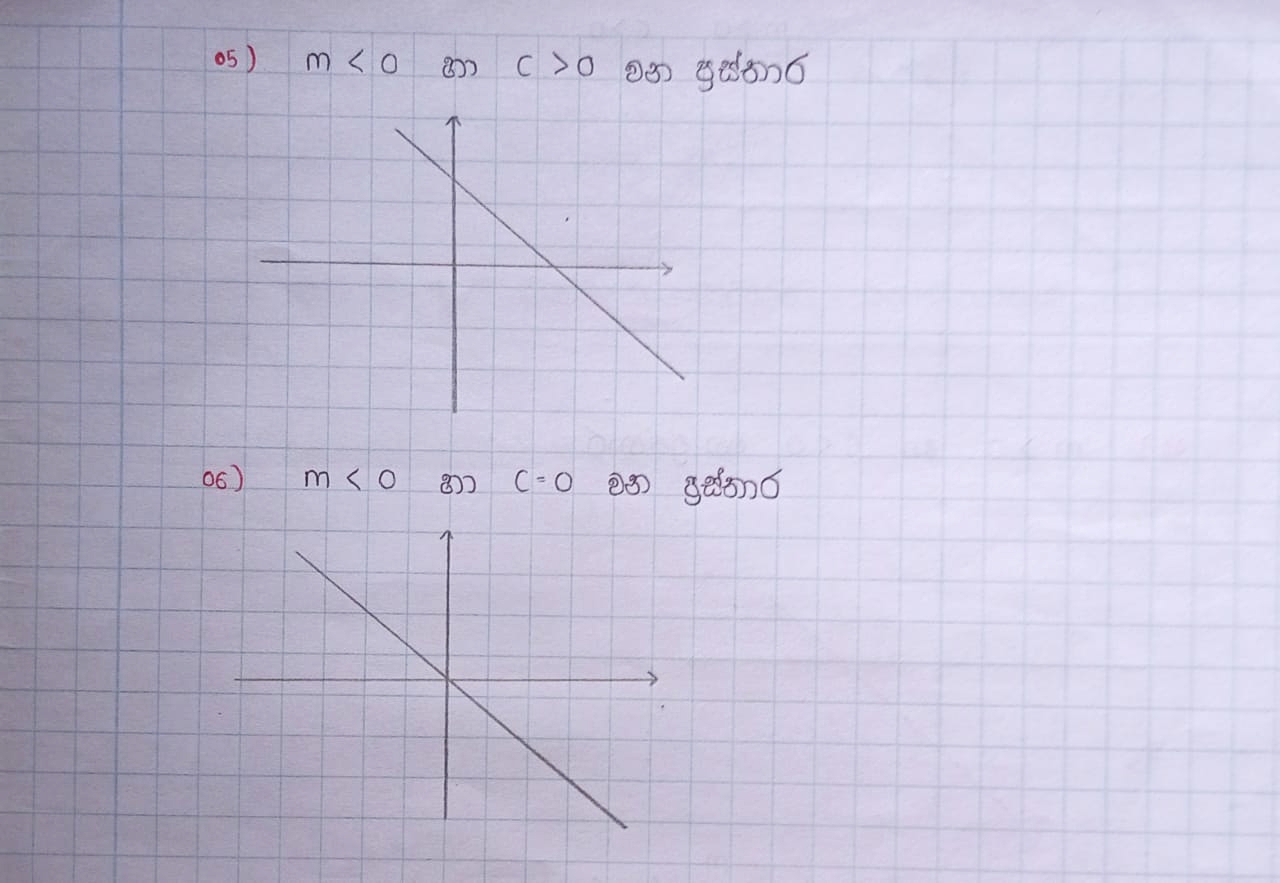 05) m < 0 හා c > 0 වන ප්‍රස්තාර
06) m < 0 හා c = 0 වන ප්‍රස්තාර